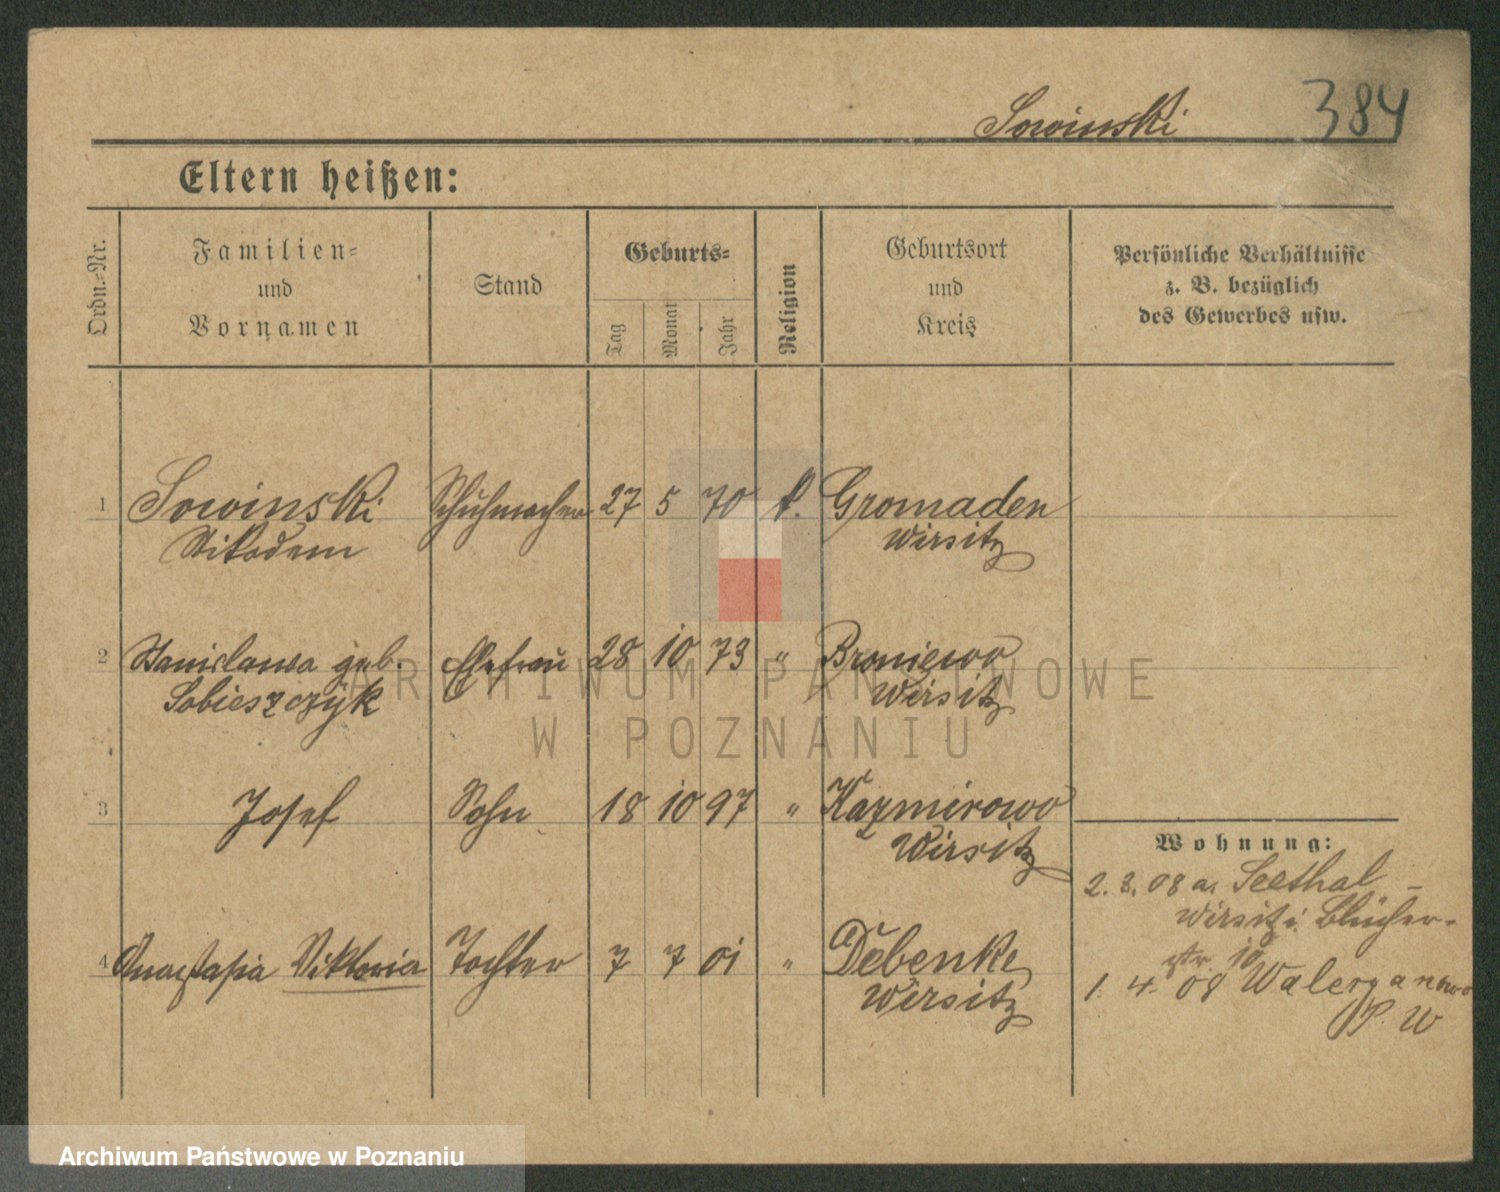 Sowinski 384
Eltern heißen:
Ordn.-Nr.
Familien-
und
Vornamen
Stand
Geburts-
Tag
Monat
Jahr
Religion
Geburtsort
und
Kreis
Persönliche Verhältnisse
z. B. bezüglich
des Gewerbes usw.
1 Sowinski Schuhmacher 27 5 70 k. Gromaden
Nikodem Wirsitz
2 Stanislawa geb. Ehefrau 28 10 73 " Broniewo
Sobieszczyk Wirsitz
ARCHIWUM PAŃSTWOWE
W POZNANIU
3 Josef Sohn 18 10 97 " Kazmirowo
Wirsitz
4 Anastasia Viktoria Tochter 7 7 01 " Debenke
Wirsitz
Wohnung:
2. 3. 08 a. Seethal -
Wirsitz Blücher-
str. 10
1. 4. 08 Walerganowo
P. W
Archiwum Państwowe w Poznaniu